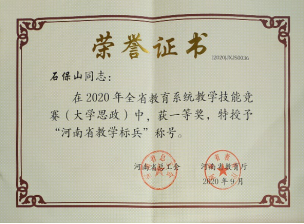 荣誉证书
石保山同志：
在2020年全省教育系统教学技能竞
赛（大学思政）中，获一等奖，特授予
“河南省教学标兵”称号。
河南省总工会 河南省教育厅
2020年9月